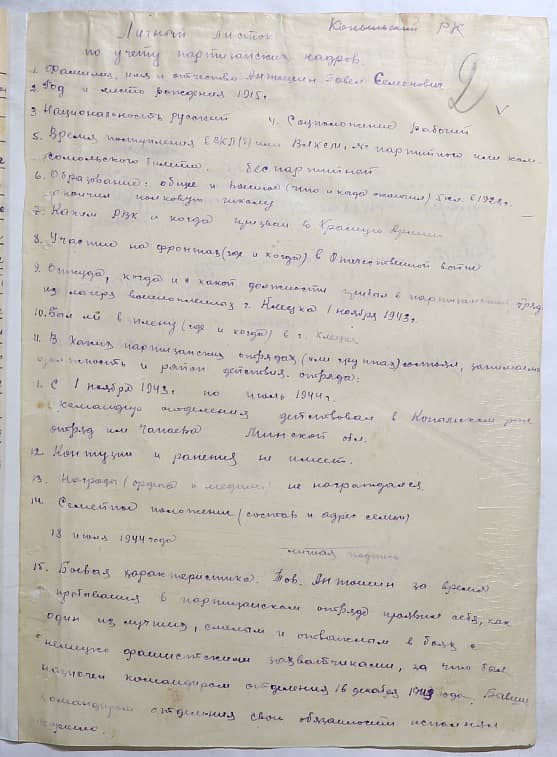 Копыльский РК
Личный листок
по учету партизанских кадров.
1. Фамилия, имя и отчество Антошин Павел Семенович
2. Год и место рождения 1915 г.
3 Национальность русский 4. Соцположение рабочий
5. Время поступления в ВКП(б) или ВЛКСМ, № партийного или ком-
сомольского билета. беспартийный
6. Образование: общее и военное (что и когда окончил) 5 кл. в 1928 г.
окончил полковую школу
7. Каким РВК и когда призван в Красную Армию
8. Участие на фронтах (где и когда) в Отечественной войне
9. Откуда, когда и с какой должности прибыл в партизанский отряд
из лагеря военнопленных г. Клецка 1 ноября 1943 г.
10. Был ли в плену (где и когда) в г. Клецке
11. В каких партизанских отрядах (или группах) состоял, занимаемая
должность и район действия отряда:
1. С 1 ноября 1943 г. по июль 1944 г.
командир отделения действовал в Копыльском р-не
отряд им Чапаева Минской обл.
12. Контузии и ранения не имеет.
13. Награды (ордена и медали) не награждался.
14. Семейное положение (состав и адрес семьи)
18 июля 1944 года
личная подпись
15. Боевая характеристика. Тов. Антошин за время
пребывания в партизанском отряде проявил себя, как
один из лучших, смелым и отважным в боях с
немецко фашистскими захватчиками, за что был
назначен командиром отделения 16 декабря 1943 года. Бывши
командиром отделения свои обязанности исполнял
хорошо.